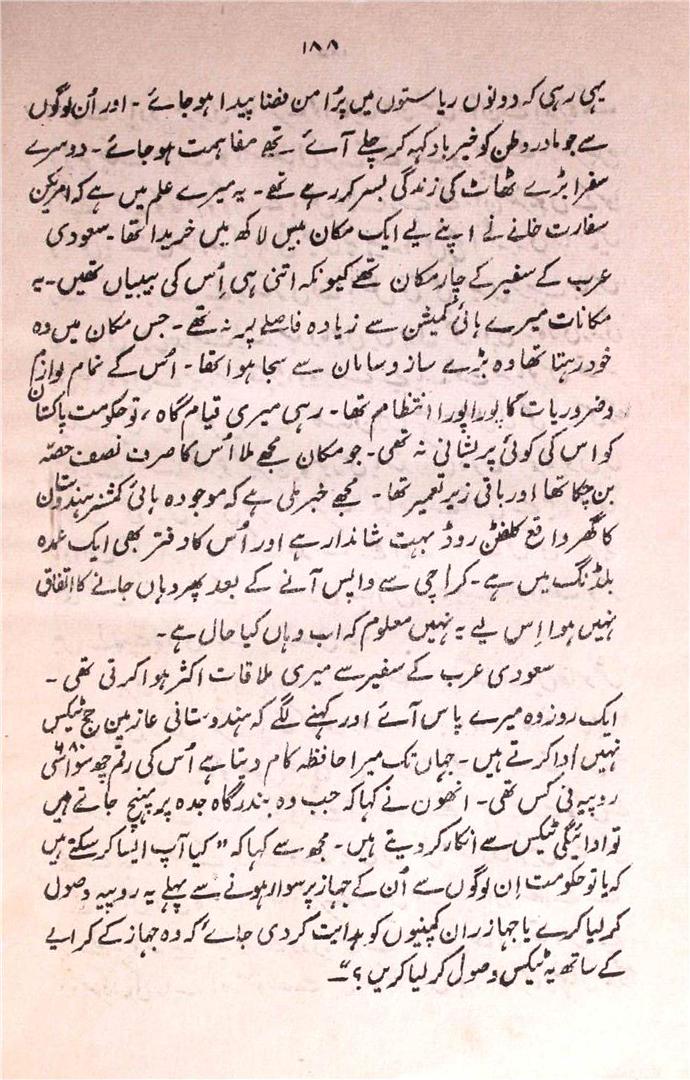 ۱۸۸
یہی رہی کہ دونوں ریاستوں میں پُرامن فضا پیدا ہو جائے ۔ اور اُن لوگوں
سے جو مادر وطن کو خیرباد کہہ کر چلے آئے تھے مفاہمت ہو جائے ۔ دوسرے
سفرا بڑے ٹھاٹ کی زندگی بسر کر رہے تھے ۔ یہ میرے علم میں ہے کہ امریکن
سفارت خانے نے اپنے لیے ایک مکان بیس لاکھ میں خریدا تھا ۔ سعودی
عرب کے سفیر کے چار مکان تھے کیونکہ اتنی ہی اُس کی بیبیاں تھیں ۔ یہ
مکانات میرے ہائی کمیشن سے زیادہ فاصلے پر نہ تھے ۔ جس مکان میں وہ
خود رہتا تھا وہ بڑے ساز و سامان سے سجا ہوا تھا ۔ اُس کے تمام لوازم
و ضروریات کا پورا پورا انتظام تھا ۔ رہی میری قیام گاہ ، تو حکومت پاکستان
کو اس کی کوئی پریشانی نہ تھی ۔ جو مکان مجھے ملا اُس کا صرف نصف حصّہ
بن چکا تھا اور باقی زیر تعمیر تھا ۔ مجھے خبر ملی ہے کہ موجودہ ہائی کمشنر ہندوستان
کا گھر واقع کلفٹن روڈ بہت شاندار ہے اور اُس کا دفتر بھی ایک عمدہ
بلڈنگ میں ہے ۔ کراچی سے واپس آنے کے بعد پھر وہاں جانے کا اتفاق
نہیں ہوا اِس لیے یہ نہیں معلوم کہ اب وہاں کیا حال ہے ۔
سعودی عرب کے سفیر سے میری ملاقات اکثر ہوا کرتی تھی ۔
ایک روز وہ میرے پاس آئے اور کہنے لگے کہ ہندوستانی عازمین حج ٹیکس
نہیں ادا کرتے ہیں ۔ جہاں تک میرا حافظہ کام دیتا ہے اُس کی رقم چھ سو اسّی ۶۸۰
روپیہ فی کس تھی ۔ انھوں نے کہا کہ جب وہ بندرگاہ جدہ پر پہنچ جاتے ہیں
تو ادائیگی ٹیکس سے انکار کر دیتے ہیں ۔ مجھ سے کہا کہ ” کیا آپ ایسا کر سکتے ہیں
کہ یا تو حکومت اِن لوگوں سے اُن کے جہاز پر سوار ہونے سے پہلے یہ روپیہ وصول
کر لیا کرے یا جہاز ران کمپنیوں کو ہدایت کر دی جائے کہ وہ جہاز کے کرایے
کے ساتھ یہ ٹیکس وصول کر لیا کریں ؟ “